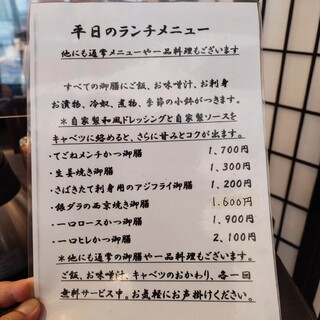 平日のランチメニュー
他にも通常メニューや一品料理もございます
すべての御膳にご飯、お味噌汁、お刺身
お漬物、冷奴、煮物、季節の小鉢がつきます。
＊自家製和風ドレッシングと自家製ソースを
キャベツに絡めると、さらに甘みとコクが出ます。
・てごねメンチかつ御膳 1,700円
・生姜焼き御膳 1,300円
・さばきたて刺身用のアジフライ御膳 1,200円
・銀ダラの西京焼き御膳 1,600円
・一口ロースかつ御膳 1,900円
・一口ヒレかつ御膳 2,100円
＊他にも通常の御膳や一品料理もございます。
ご飯、お味噌汁、キャベツのおかわり、各一回
無料サービス中。お気軽にお声掛けください。